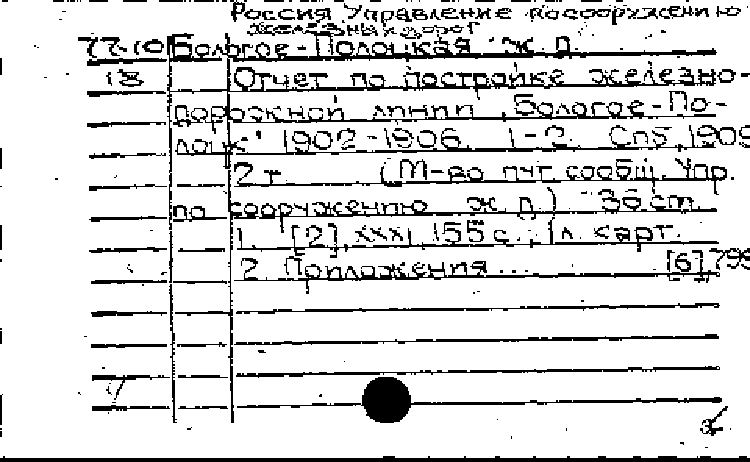 Россия Управление по сооружению
железных дорог
77-10 Бологое-Полоцкая ж. д.
18 Отчет по постройке железно-
дорожной линии „Бологое-По-
лоцк" 1902-1906. 1-2. Спб, 1909
2 т. (М-во пут. сообщ. Упр.
по сооружению ж. д.) 36 см.
1. [2], XXXI, 155 с., 1 л. карт.
2. Приложения ... [6], 799